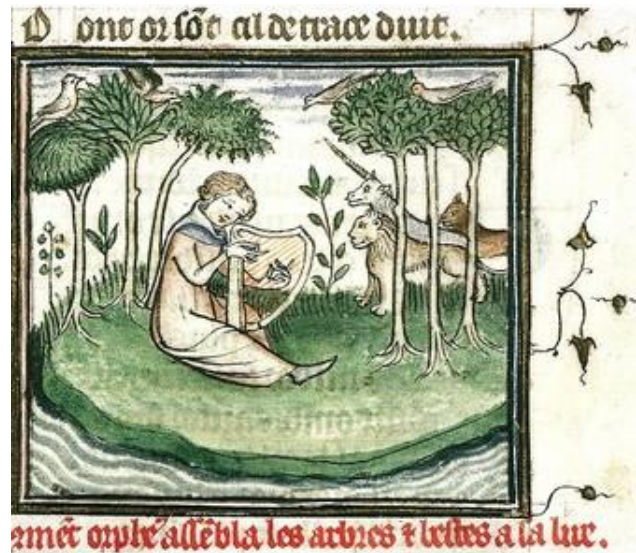 D ont or sõt cil de trace duit.
mẽt orphe⁹ assẽbla les arbres ⁊ bestes a la lire.